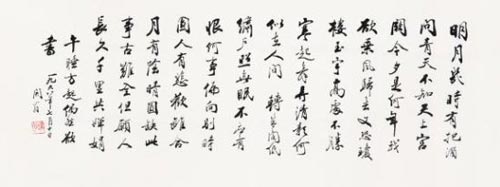 明月幾時有把酒
問青天不知天上宮
闕今夕是何年我
欲乘風歸去又恐瓊
樓玉宇高處不勝
寒起舞弄清影何
似在人間 轉朱閣低
綺户照無眠不應有
恨何事偏向別時
圓人有悲歡離合
月有陰晴圓缺此
事古難全但願人
長久千里共嬋娟
午睡方起偶然欲
書